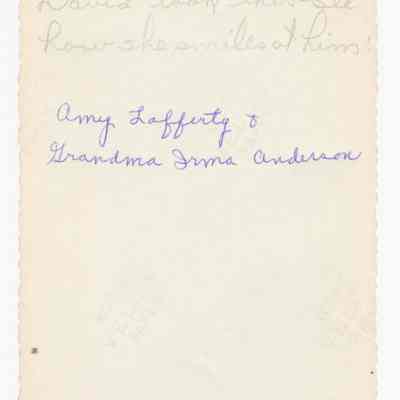 David took this. See
how she smiles at him!
Amy Lafferty &
Grandma Irma Anderson